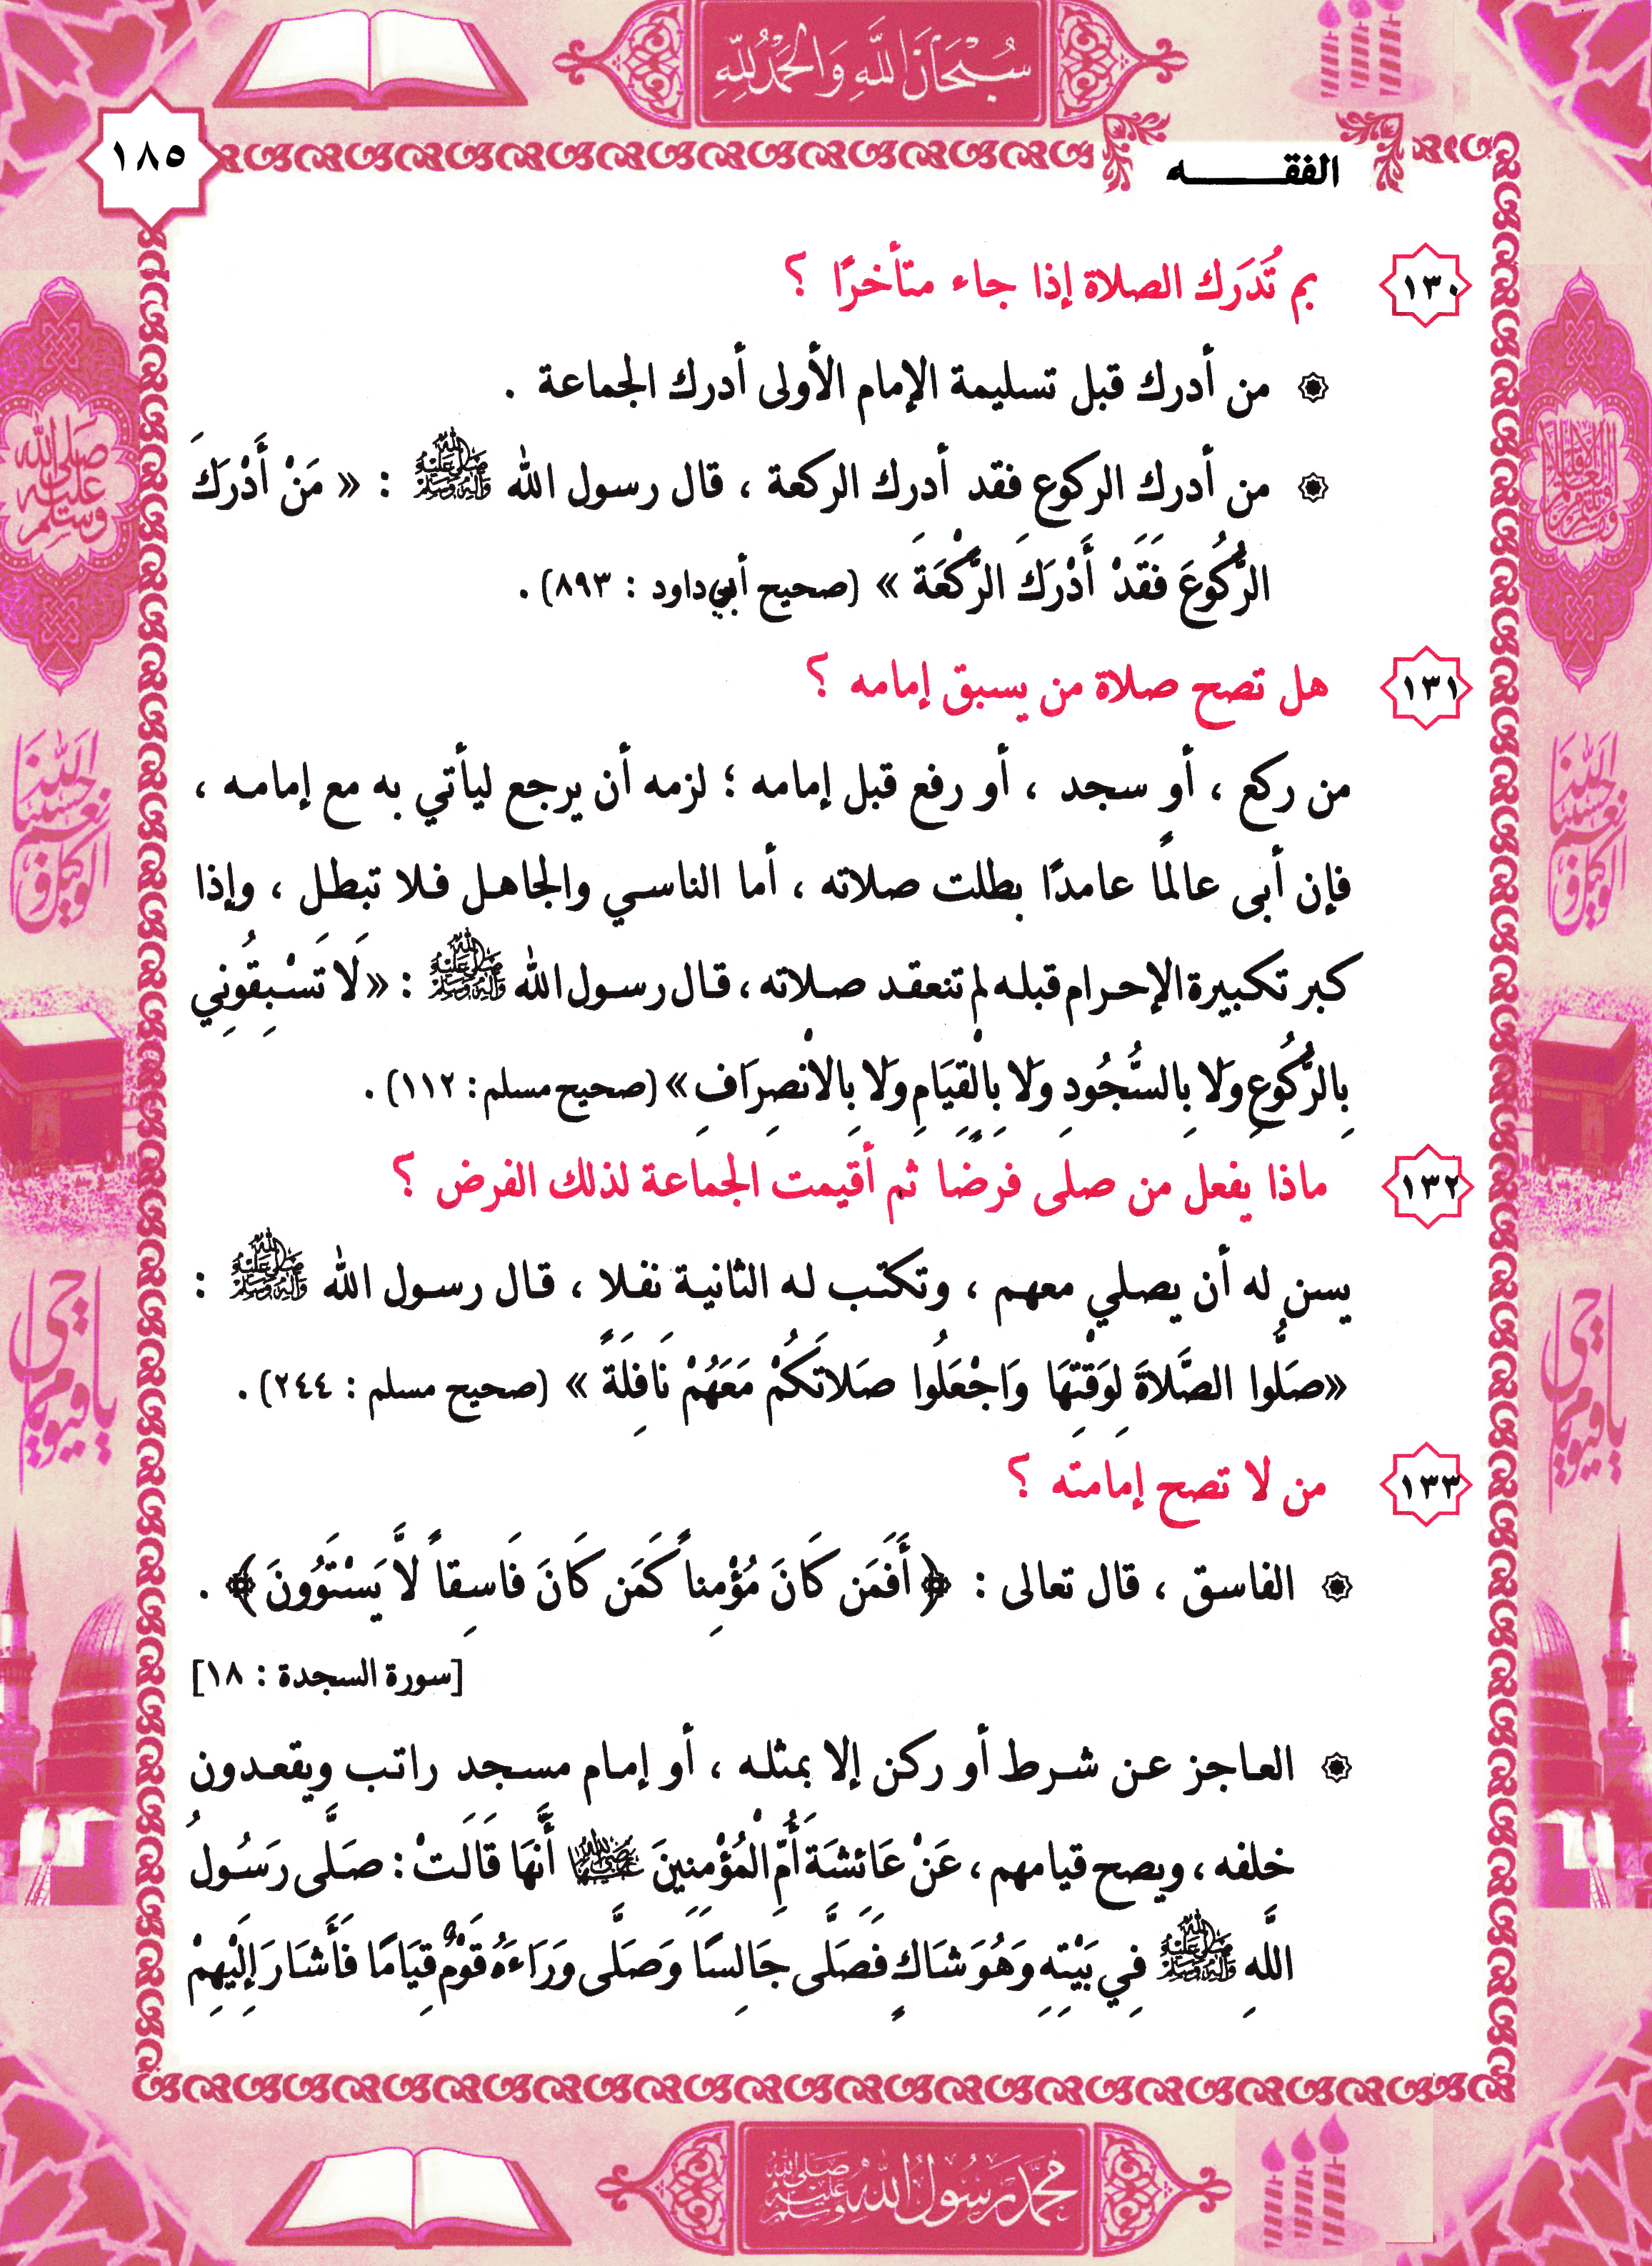 سُبْحَانَ اللَّهِ وَالْحَمْدُ لِلَّهِ
١٨٥
الفقـــــــه
١٣٠ بم تُدَرَك الصلاة إذا جاء متأخرًا ؟
من أدرك قبل تسليمة الإمام الأولى أدرك الجماعة .
من أدرك الركوع فقد أدرك الركعة ، قال رسول الله ﷺ : « مَنْ أَدْرَكَ
الرُّكُوعَ فَقَدْ أَدْرَكَ الرَّكْعَةَ » (صحيح أبي داود : ٨٩٣) .
١٣١ هل تصح صلاة من يسبق إمامه ؟
من ركع ، أو سجد ، أو رفع قبل إمامه ؛ لزمه أن يرجع ليأتي به مع إمامـه ،
فإن أبى عالمًا عامدًا بطلت صلاته ، أما الناسـي والجاهـل فـلا تبطـل ، وإذا
كبر تكبيرة الإحـرام قبلـه لم تنعقـد صـلاته ، قـال رسـول الله ﷺ : « لَا تَسْـبِقُونِي
بِالرُّكُوعِ وَلَا بِالسُّجُودِ وَلَا بِالْقِيَامِ وَلَا بِالْانْصِرَافِ » (صحيح مسلم : ١١٢) .
١٣٢ ماذا يفعل من صلى فرضا ثم أقيمت الجماعة لذلك الفرض ؟
يسن له أن يصلي معهـم ، وتكتـب لـه الثانيـة نفـلا ، قـال رسـول الله ﷺ :
«صَلُّوا الصَّلَاةَ لِوَقْتِهَا وَاجْعَلُوا صَلَاتَكُمْ مَعَهُمْ نَافِلَةً » (صحيح مسلم : ٢٤٤) .
١٣٣ من لا تصح إمامته ؟
الفاسـق ، قال تعالى : ﴿ أَفَمَن كَانَ مُؤْمِناً كَمَن كَانَ فَاسِقاً لَّا يَسْتَوُونَ ﴾ .
[سورة السجدة : ١٨]
العـاجز عـن شـرط أو ركن إلا بمثلـه ، أو إمـام مسـجد راتـب ويقعـدون
خلفه ، ويصح قيامهم ، عَنْ عَائِشَةَ أُمِّ الْمُؤْمِنِينَ رضي الله عنها أَنَّهَا قَالَتْ : صَلَّى رَسُولُ
اللَّهِ ﷺ فِي بَيْتِهِ وَهُوَ شَاكٍ فَصَلَّى جَالِسًا وَصَلَّى وَرَاءَهُ قَوْمٌ قِيَامًا فَأَشَارَ إِلَيْهِمْ
صلى الله عليه وسلم
حسبنا الله ونعم الوكيل
يا حي يا قيوم
محمد رسول الله صلى الله عليه وسلم